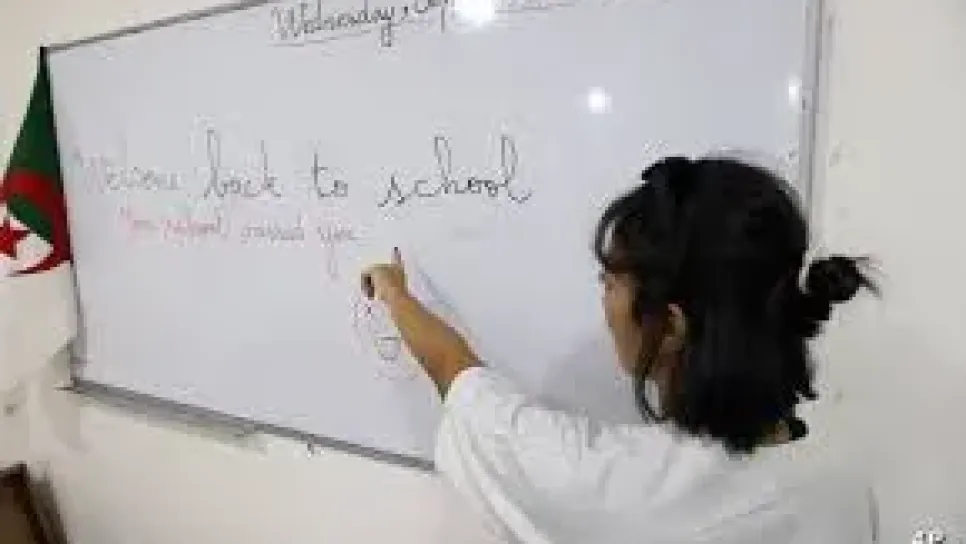 Wednesday,
Welcome back to school
school missed you
AP